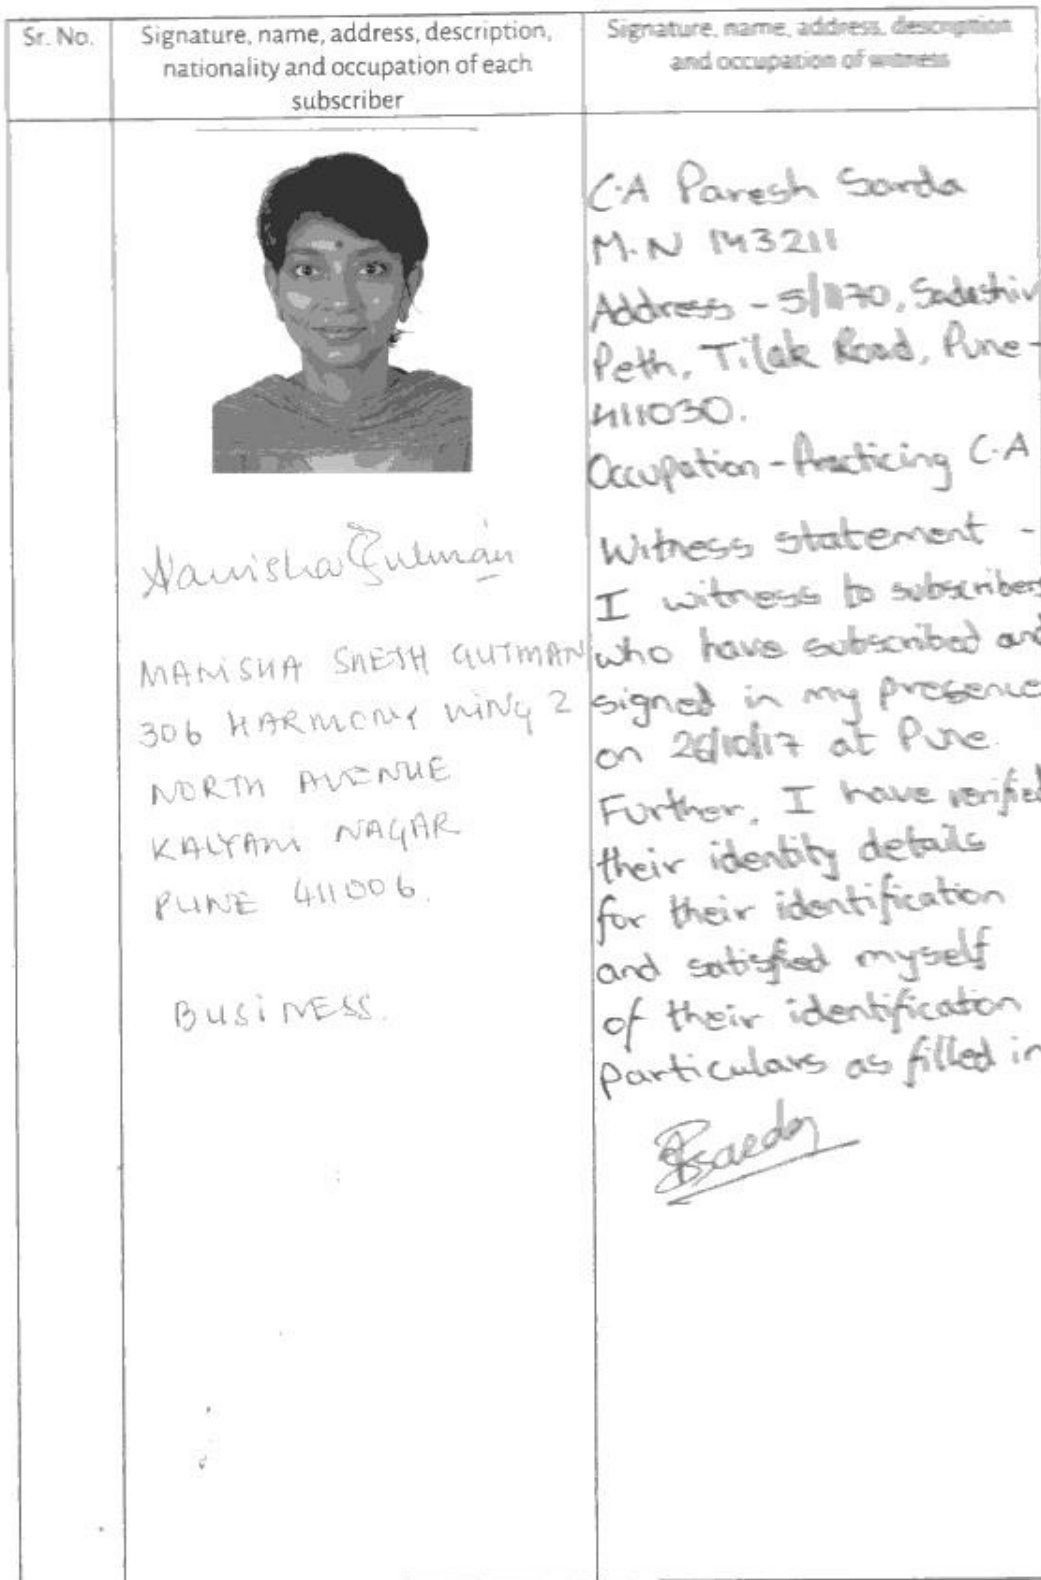 Sr. No.
Signature, name, address, description,
nationality and occupation of each
subscriber
Signature, name, address, description
and occupation of witness
Manisha Gutman
MANISHA SHETH GUTMAN
306 HARMONY WING 2
NORTH AVENUE
KALYANI NAGAR
PUNE 411006.
BUSINESS.
C.A Paresh Sarda
M.N 143211
Address - 5/1170, Sadashiv
Peth, Tilak Road, Pune -
411030.
Occupation - Practicing C.A
Witness statement -
I witness to subscribers
who have subscribed and
signed in my presence
on 26/10/17 at Pune.
Further, I have verified
their identity details
for their identification
and satisfied myself
of their identification
particulars as filled in
PSarda